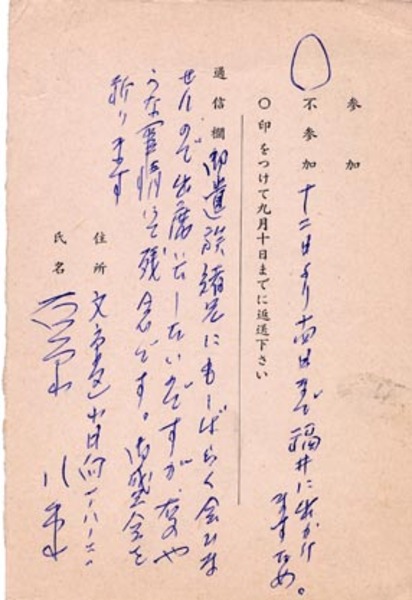 参加
不参加 十二日より十四日まで福井に出かけ
ますため。
〇印をつけて九月十日までに返送下さい
通信欄 御遺族諸兄にもしばらく会いま
せんので出席いたしたいですが、
うな事情にて残念です。御盛会を
祈ります
住所 文京区小日向
氏名